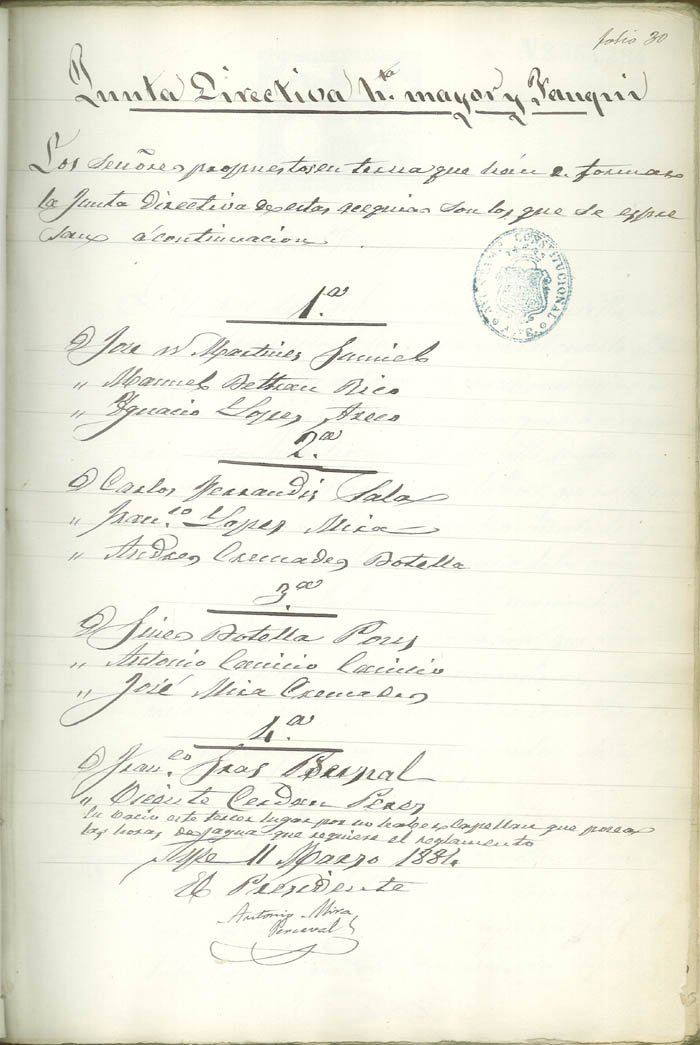 folio 30
Junta Directiva h.ta mayor y Fauquí
Los señores propuestos en terna que hán e formar
la Junta Directiva de estas acequias son los que se espre
san á continuacion
AYUNTAMIENTO CONSTITUCIONAL
1.a
D José M.a Martinez
" Manuel Beltran Rico
" Ygnacio Lopez
2.a
D Carlos Ferrandis Sala
" Fran.co Lopez Mira
" Andres Cremades Botella
3.a
D Gines Botella Pons
" Antonio Cañicio Cañicio
" José Mira Cremades
4.a
D Fran.co Gras Bernal
" Vicente Cerdan Pérez
En vacio este tercer lugar por no haber Capellan que posea
las horas de agua que requiere el reglamento
Aspe 11 Marzo 1884.
El Presidente
Antonio Mira
Perceval